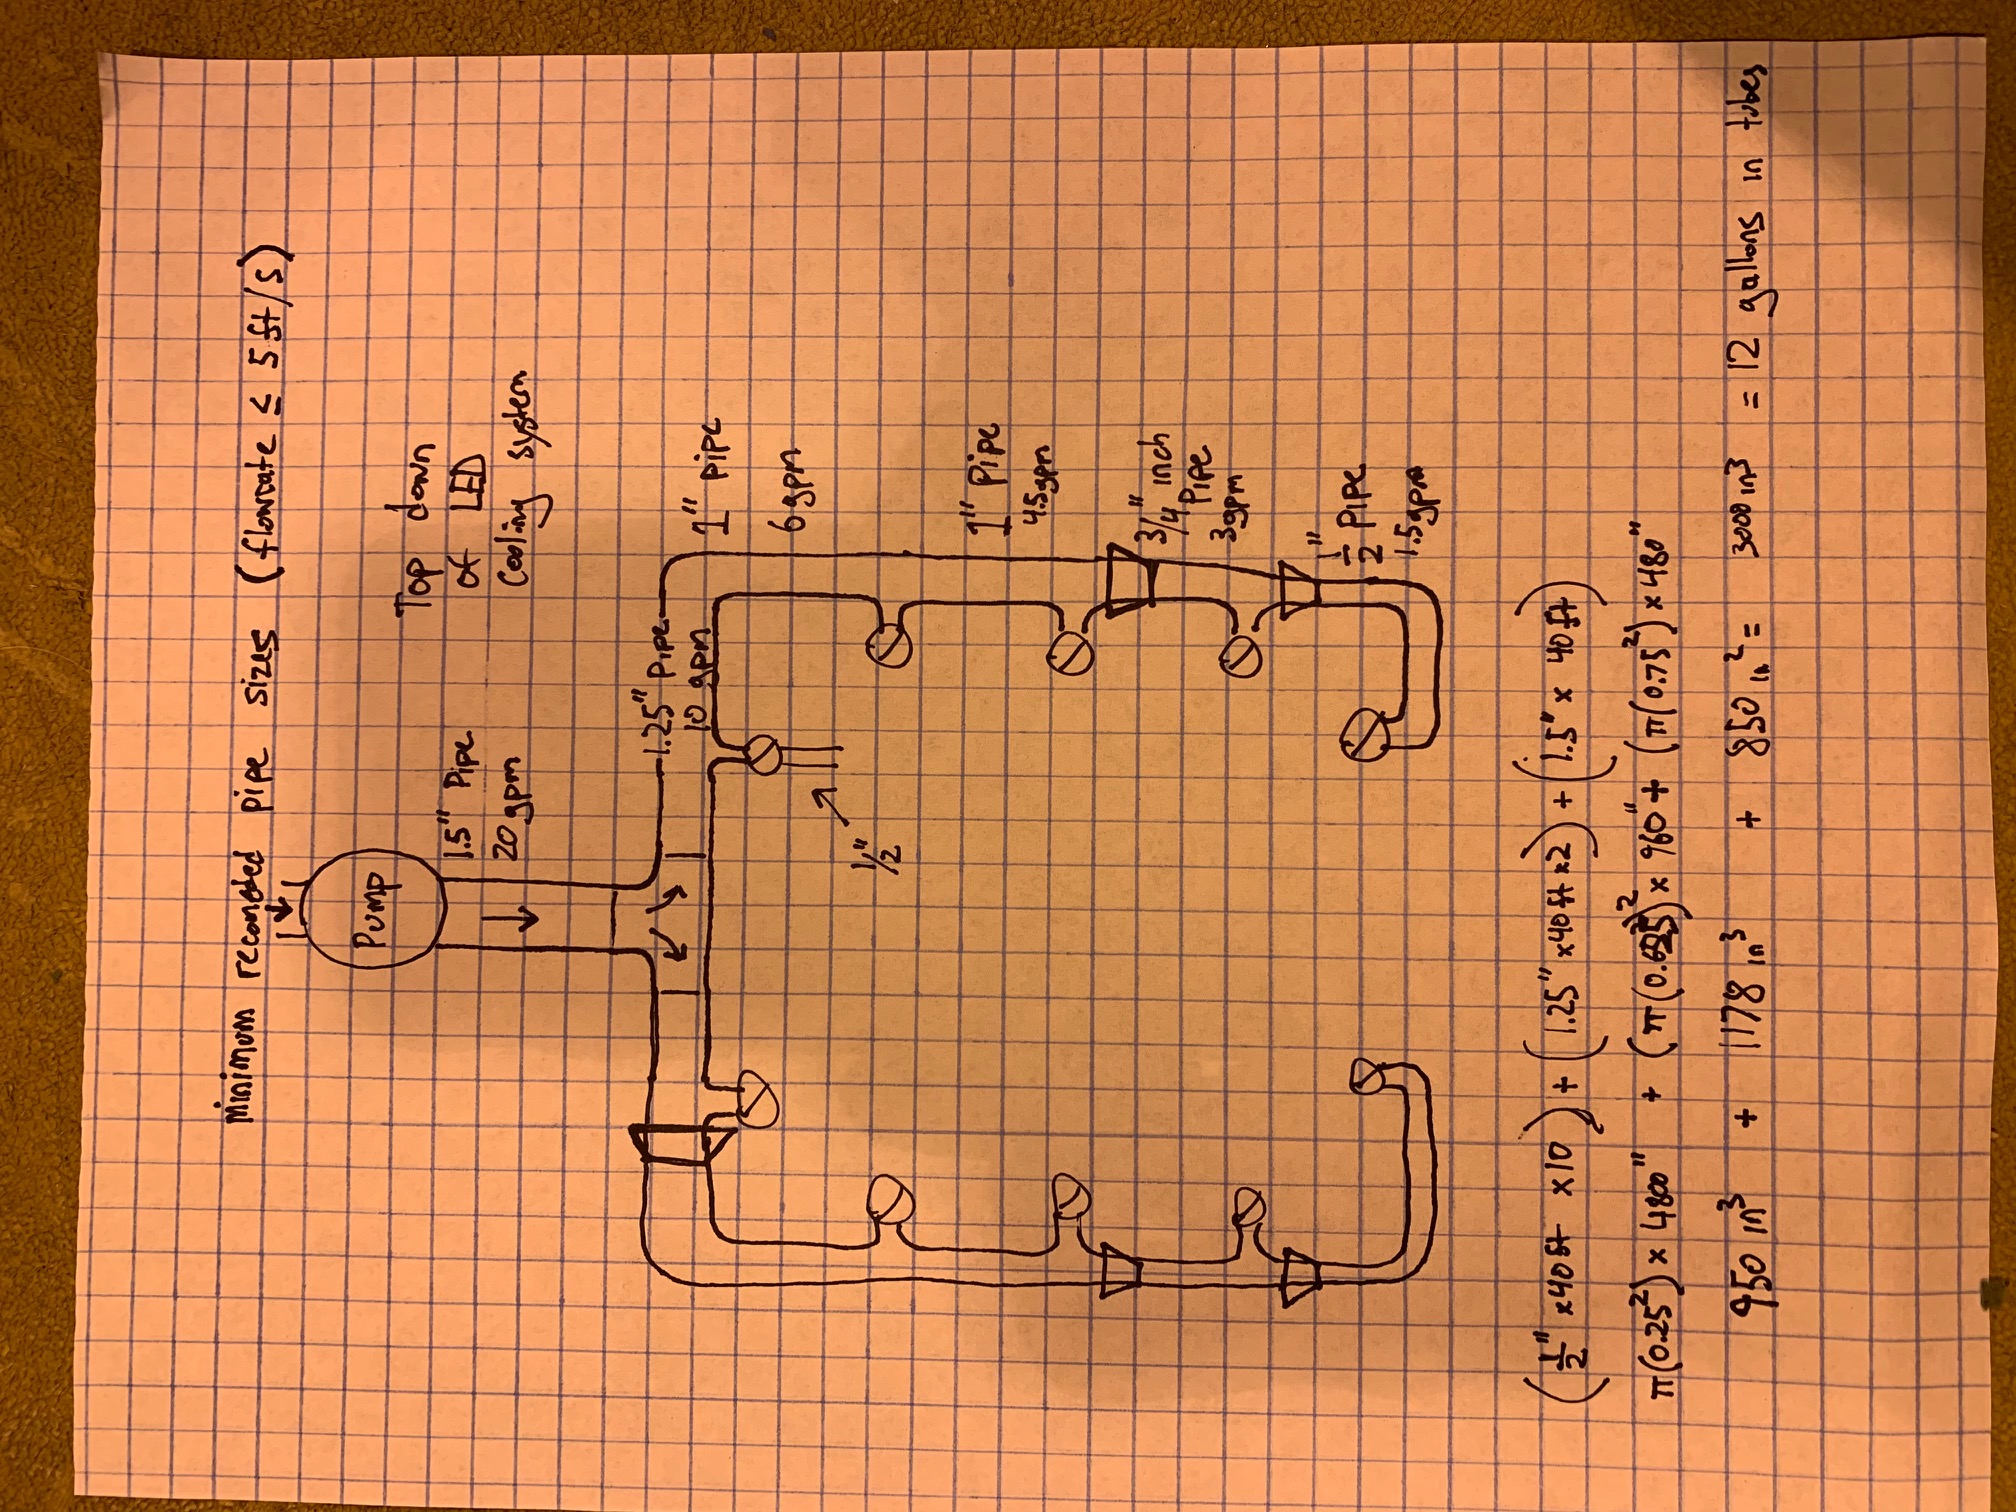 minimum recomeded pipe sizes (flowrate ≤ 5 ft/s)
Pump
Top down
of LED
Cooling system
1.5" Pipe
20 gpm
1.25" Pipe
10 gpm
1" pipe
6 gpm
1/2"
1" Pipe
4.5 gpm
3/4" inch
Pipe
3 gpm
1/2" Pipe
1.5 gpm
(1/2" x 40 ft x 10) + (1.25" x 40 ft x 2) + (1.5" x 40 ft)
π(0.25²) x 4800" + (π(0.625)² x 960" + (π(0.75²) x 480"
950 in³ + 1178 in³ + 850 in² = 3000 in³ = 12 gallons in tubes